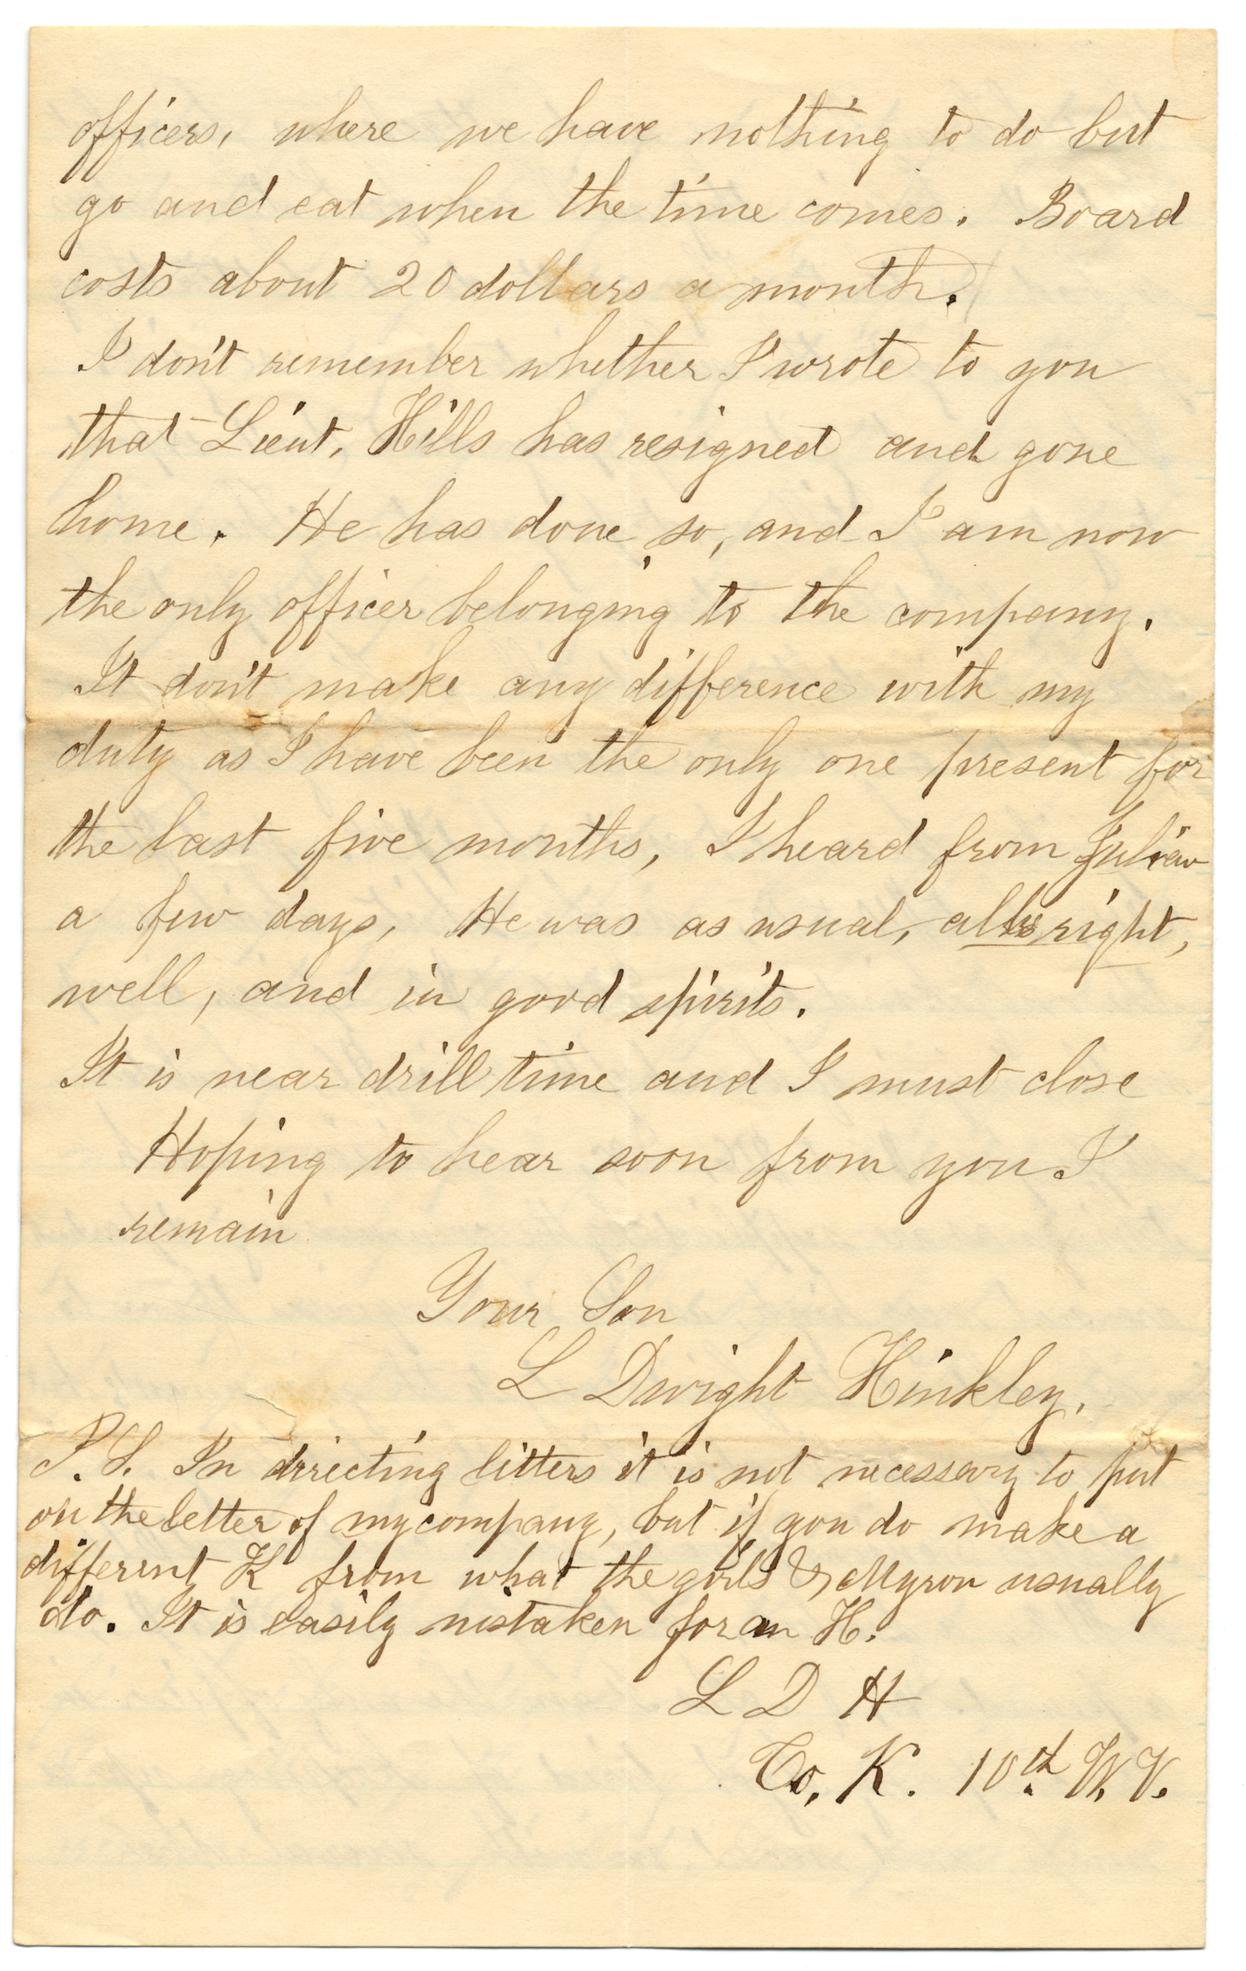 officers, where we have nothing to do but
go and eat when the time comes. Board
costs about 20 dollars a month.
I don't remember whether I wrote to you
that Lieut. Hills has resigned and gone
home. He has done so, and I am now
the only officer belonging to the company.
It don't make any difference with my
duty as I have been the only one present for
the last five months, I heard from Julian
a few days, He was as usual, all right,
well, and in good spirits.
It is near drill time and I must close
Hoping to hear soon from you I
remain
Your Son
L Dwight Hinkley.
P.S. In directing litters it is not necessary to put
on the letter of my company, but if you do make a
different K from what the girls & Myron usually
do. It is easily mistaken for an H.
L D H
Co. K. 10th W. V.